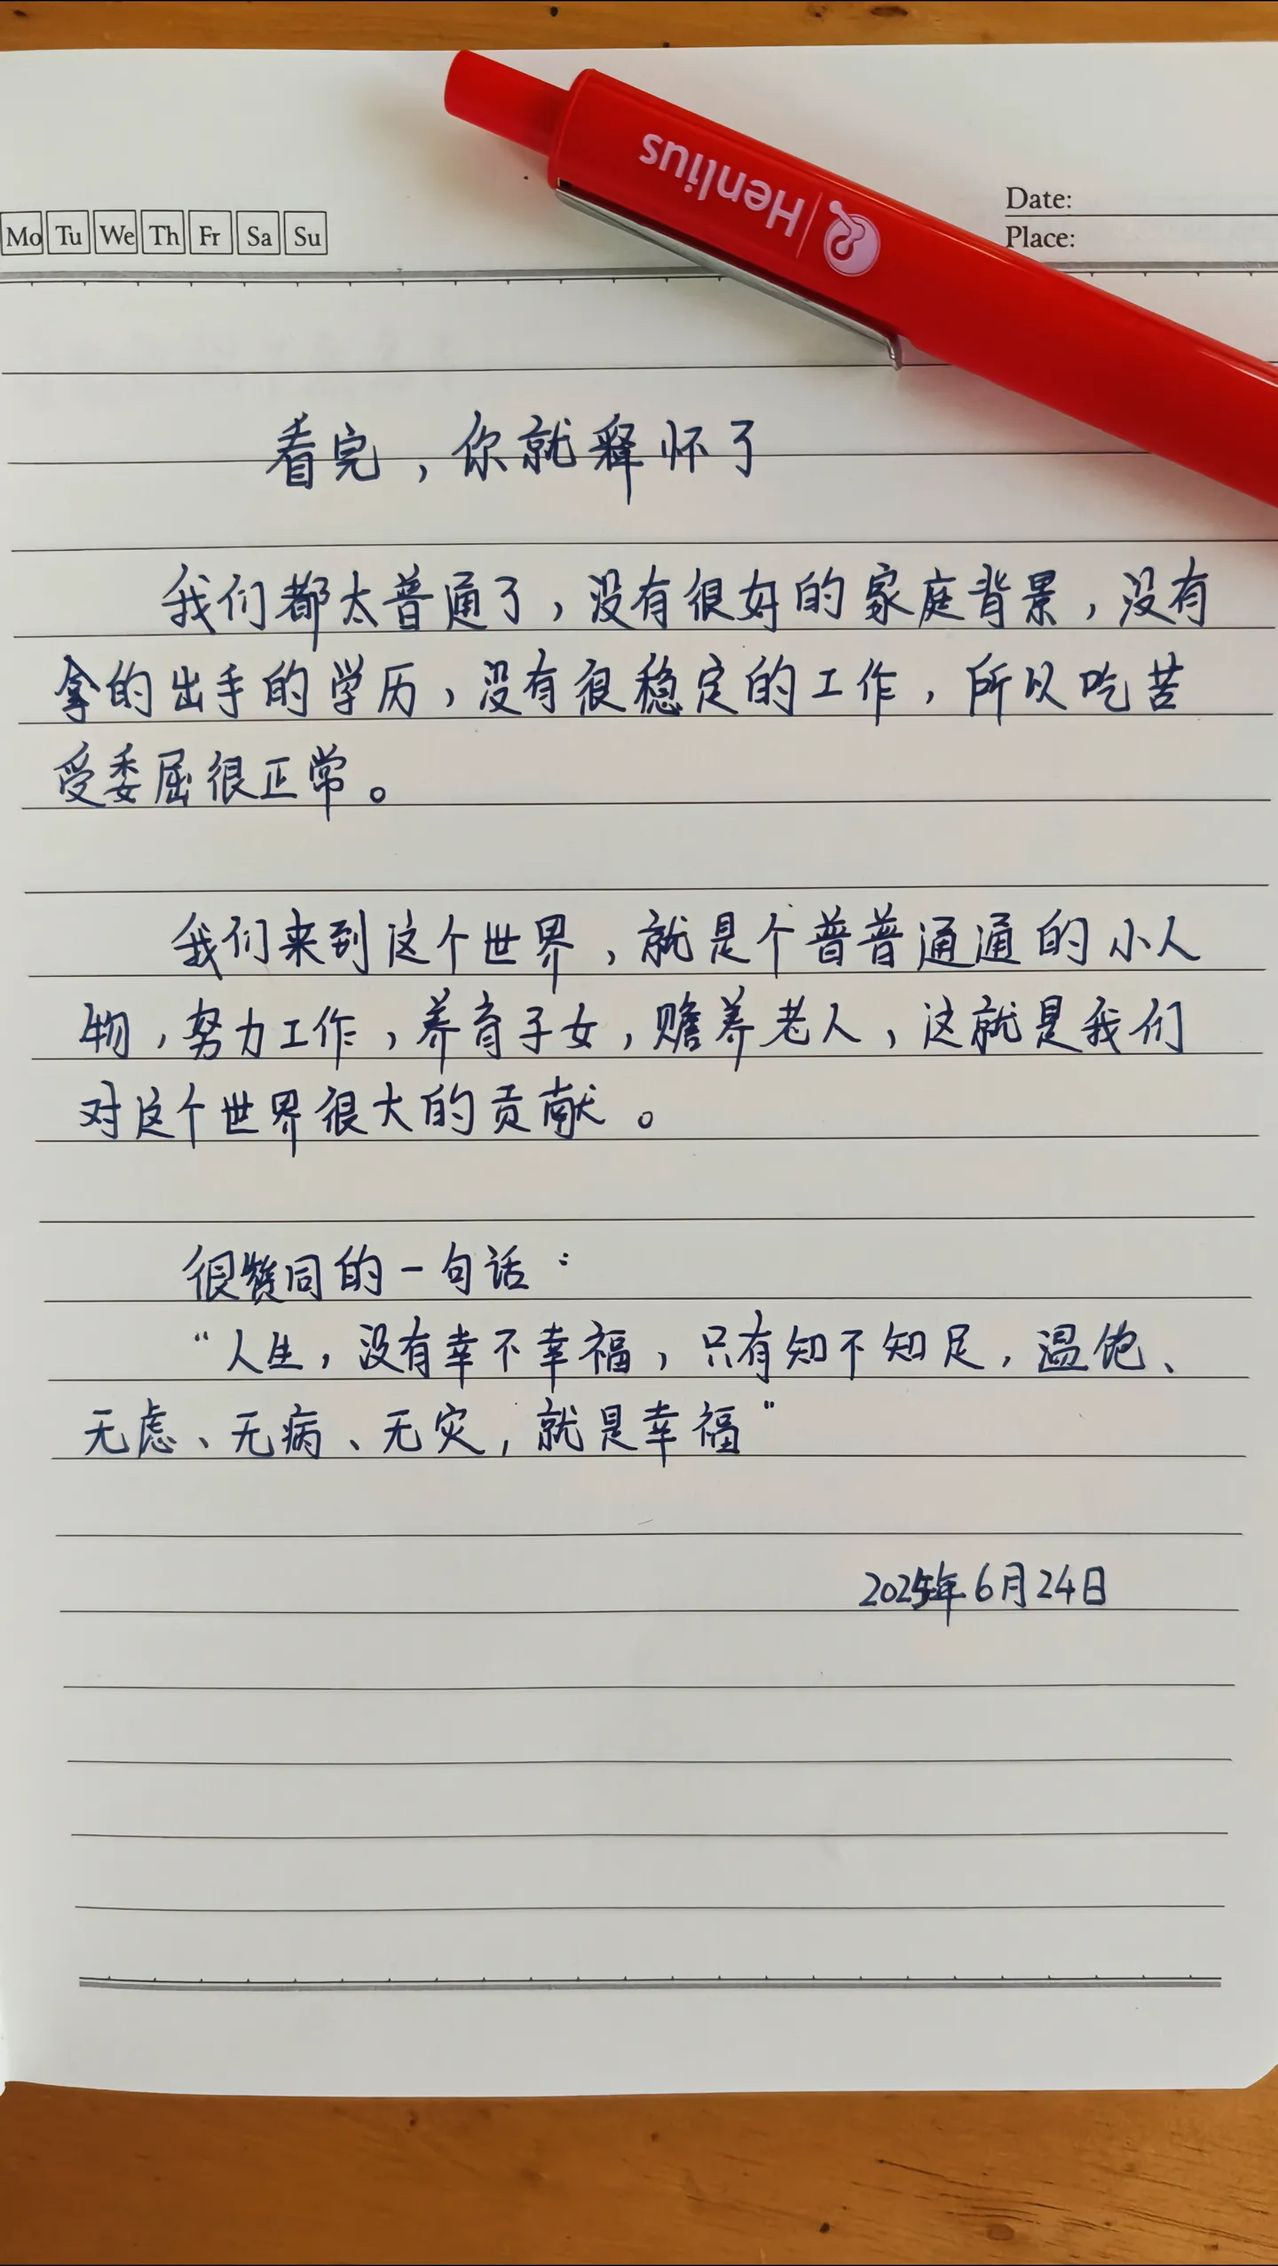 Henlius
Date:
Place:
Mo Tu We Th Fr Sa Su
看完，你就释怀了
我们都太普通了，没有很好的家庭背景，没有
拿的出手的学历，没有很稳定的工作，所以吃苦
受委屈很正常。
我们来到这个世界，就是个普普通通的小人
物，努力工作，养育子女，赡养老人，这就是我们
对这个世界很大的贡献。
很赞同的一句话：
“人生，没有幸不幸福，只有知不知足，温饱、
无虑、无病、无灾，就是幸福”
2025年6月24日